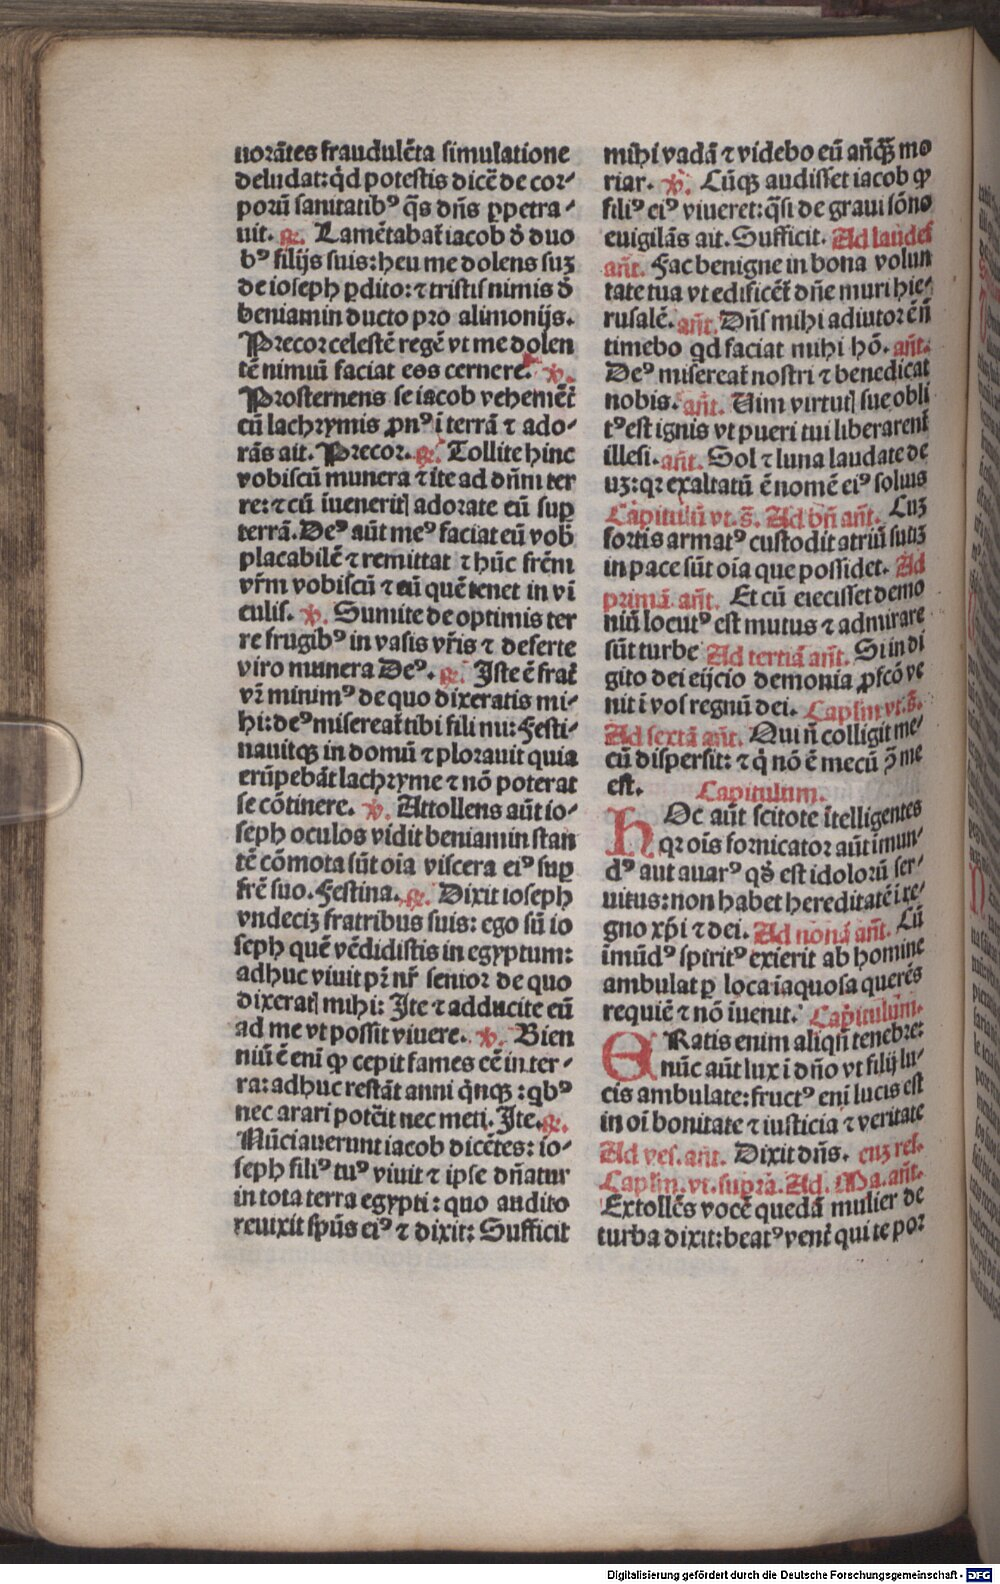 norātes fraudulēta simulatione
deludat: qd̄ potestis dicē de cor⸗
porū sanitatibꝰ q̄s dn̄s ꝑpetra⸗
uit. ℟. Lamētabat̄ iacob ď duo
bꝰ filijs suis: heu me dolens suꝫ
de ioseph ꝑdito: ⁊ tristis nimis ď
beniamin ducto pro alimonijs.
Precor celestē regē vt me dolen
tē nimiū faciat eos cernere. ℣.
Prosternens se iacob vehemēt̄
cū lachrymis ꝓnꝰ ī terrā ⁊ ado⸗
rās ait. Precor. ℟. Tollite hinc
vobiscū munera ⁊ ite ad dn̄m ter
re: ⁊ cū īueneritꝭ adorate eū suꝑ
terrā. Deꝰ aūt meꝰ faciat eū vob̄
placabilē ⁊ remittat ⁊ hūc frēm
vr̄m vobiscū ⁊ eū quē tenet in vī
culis. ℣. Sumite de optimis ter
re frugibꝰ in vasis vr̄is ⁊ deferte
viro munera Deꝰ. ℟. Iste ē frat̄
vr̄ minimꝰ de quo dixeratis mi⸗
hi: deꝰ misereat̄ tibi fili mi: Festi⸗
nauitqꝫ in domū ⁊ plorauit quia
erūpebāt lachryme ⁊ nō poterat
se cōtinere. ℣. Attollens aūt io⸗
seph oculos vidit beniamin stan
tē cōmota sūt oīa viscera eiꝰ suꝑ
frē suo. Festina. ℟. Dixit ioseph
vndeciꝫ fratribus suis: ego sū io
seph quē vēdidistis in egyptum:
adhuc viuit pr̄ nr̄ senior de quo
dixeratꝭ mihi: Ite ⁊ adducite eū
ad me vt possit viuere. ℣. Bien
niū ē enī ꝙ cepit fames eē in ter⸗
ra: adhuc restāt anni qͥnqꝫ: qͥbꝰ
nec arari potēit nec meti. Ite. ℟.
Nūciauerunt iacob dicētes: io⸗
seph filiꝰ tuꝰ viuit ⁊ ipse dn̄atur
in tota terra egypti: quo audito
reuixit sp̄us eiꝰ ⁊ dixit: Sufficit
mihi vadā ⁊ videbo eū an̄qꝫ mo
riar. ℣. Cūqꝫ audisset iacob ꝙ
filiꝰ eiꝰ viueret: q̄si de graui sōno
euigilās ait. Sufficit. Ad laudes
an̄t. Fac benigne in bona volun
tate tua vt edificēt̄ dn̄e muri hie⸗
rusalē. an̄t. Dn̄s mihi adiutor ē n̄
timebo qd̄ faciat mihi hō. an̄t.
Deꝰ misereat̄ nostri ⁊ benedicat
nobis. an̄t. Uim virtutꝭ sue obli
tꝰ est ignis vt pueri tui liberarent̄
illesi. an̄t. Sol ⁊ luna laudate de
uꝫ: qꝛ exaltatū ē nomē eiꝰ solius
Capitulū vt. s̄. Ad bn̄ an̄t. Cuꝫ
fortis armatꝰ custodit atriū suūꝫ
in pace sūt oīa que possidet. Ad
primā. an̄t. Et cū eiecisset demo
niū locutꝰ est mutus ⁊ admirare
sūt turbe Ad tertiā an̄t. Si in di
gito dei eijcio demonia ꝓfcō ve
nit ī vos regnū dei. Caplm vt. s̄.
Ad sextā an̄t. Qui n̄ colligit me⸗
cū dispersit: ⁊ q̇ nō ē mecū ꝯ̄ me
est. Capitulum.
HOc aūt scitote ītelligentes
qꝛ oīs fornicator aūt īmun⸗
dꝰ aut auarꝰ qd̄ est idolorū ser⸗
uitus: non habet hereditatē ī re⸗
gno xp̄i ⁊ dei. Ad nonā an̄t. Cū
imūdꝰ spiritꝰ exierit ab homine
ambulat ꝑ loca īaquosa querēs
requiē ⁊ nō īuenit. Capitulum.
ERatis enim aliqn̄ tenebre:
nūc aūt lux ī dn̄o vt filij lu⸗
cis ambulate: fructꝰ enī lucis est
in oī bonitate ⁊ iusticia ⁊ veritate
Ad ves. an̄t. Dixit dn̄s. cuꝫ rel.
Caplm. vt. supra. Ad. Ma. an̄t.
Extollēs vocē quedā mulier de
turba dixit: beatꝰ vent̄ qui te por
Digitalisierung gefördert durch die Deutsche Forschungsgemeinschaft - DFG